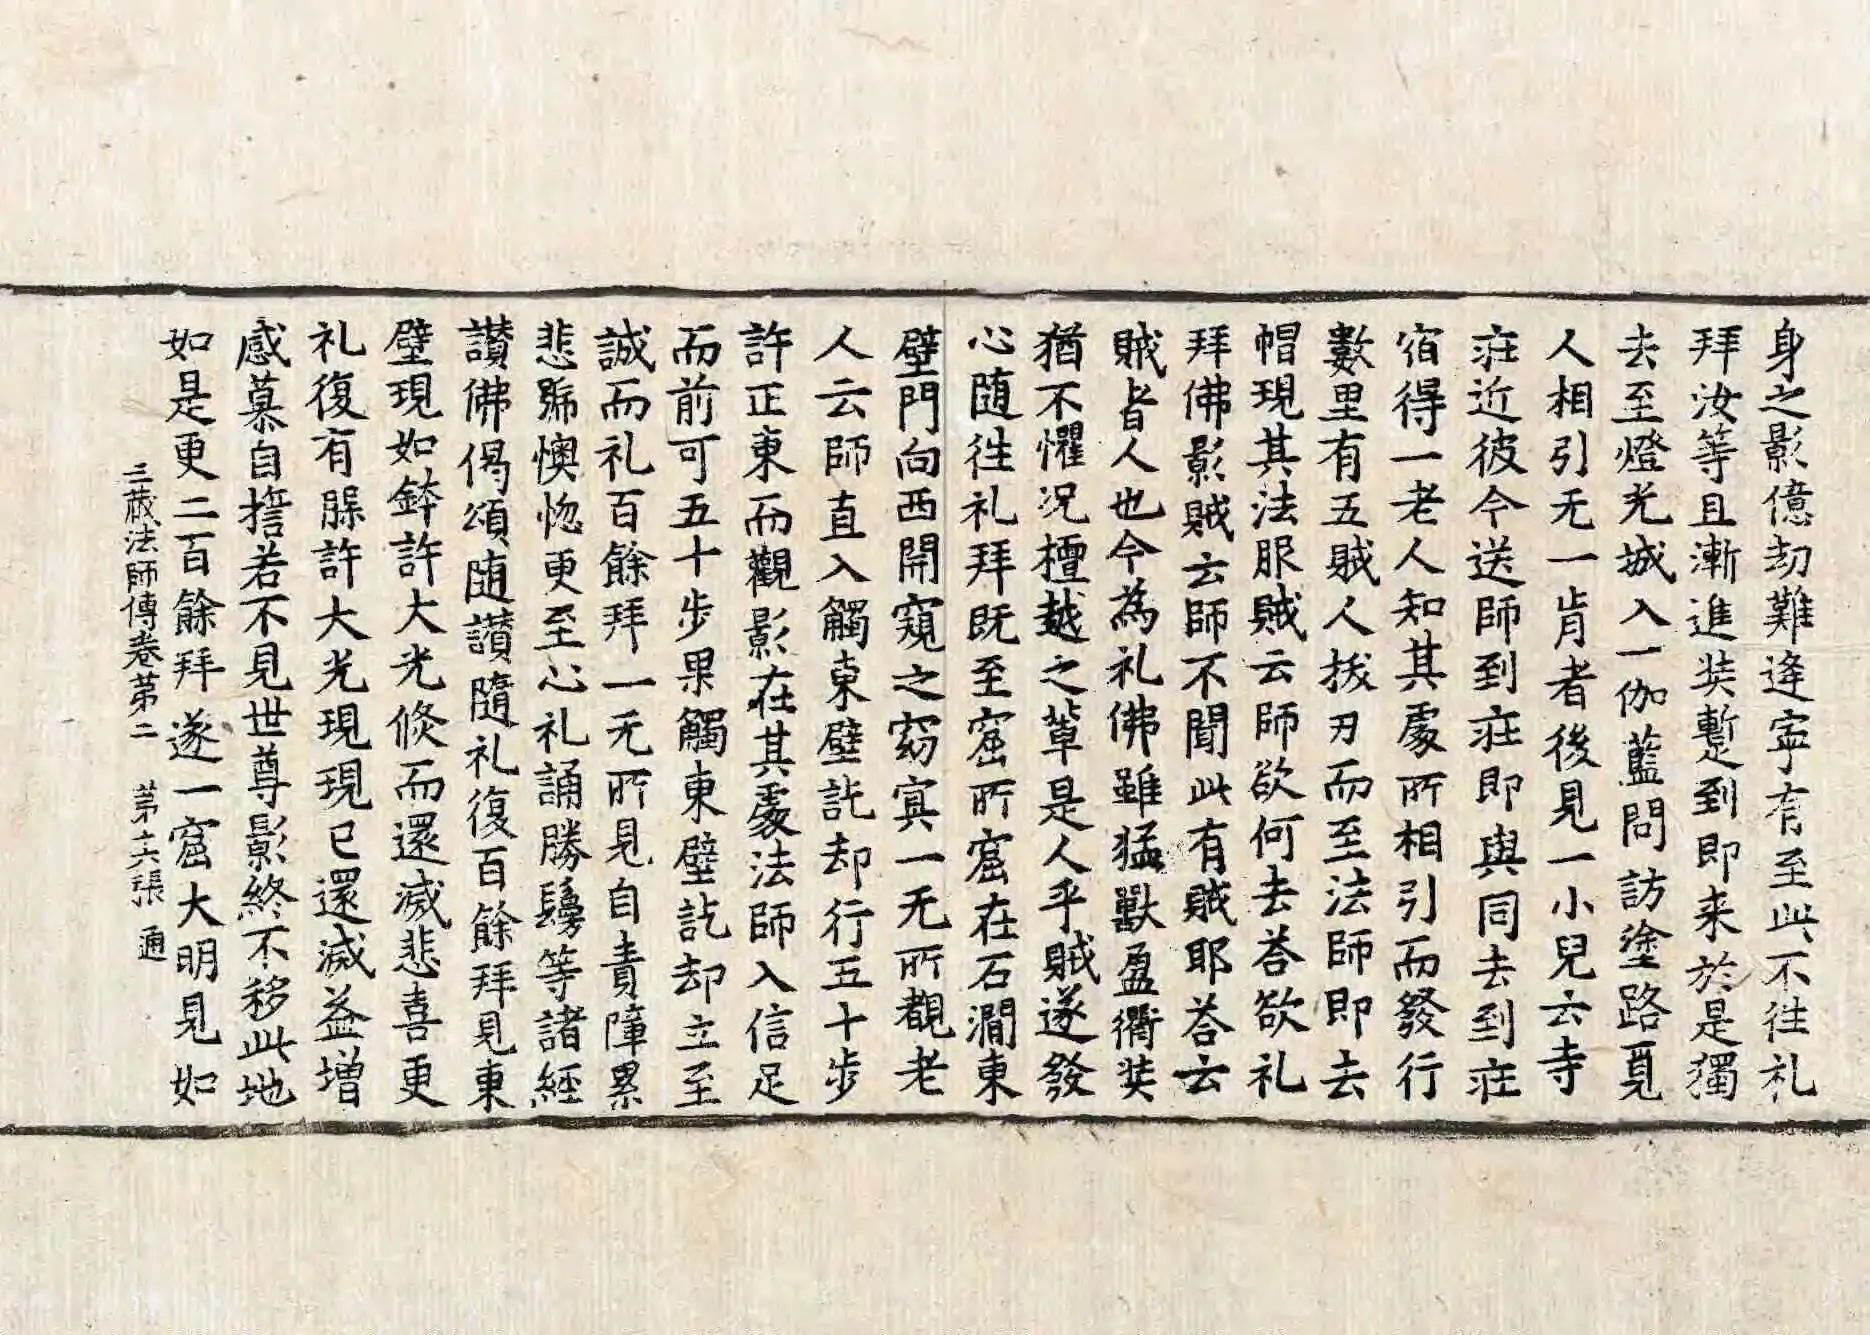 身之影億劫難逢寧有至此不往礼
拜汝等且漸進奘蹔到即来於是獨
去至燈光城入一伽藍問訪塗路覓
人相引无一肯者後見一小兒云寺
莊近彼今送師到莊即與同去到莊
宿得一老人知其處所相引而發行
數里有五賊人拔刃而至法師即去
帽現其法服賊云師欲何去荅欲礼
拜佛影賊云師不聞此有賊耶荅云
賊者人也今為礼佛雖猛獸盈衢奘
猶不懼況檀越之輩是人乎賊遂發
心随往礼拜既至窟所窟在石澗東
壁門向西開窺之窈冥一无所覩老
人云師直入觸東壁訖却行五十步
許正東而觀影在其處法師入信足
而前可五十步果觸東壁訖却立至
誠而礼百餘拜一无所見自責障累
悲号懊惚更至心礼誦勝鬘等諸經
讃佛偈頌随讃隨礼復百餘拜見東
壁現如鉢許大光倐而還滅悲喜更
礼復有槃許大光現現已還滅益增
感慕自擔若不見世尊影終不移此地
如是更二百餘拜遂一窟大明見如
三藏法師傳卷第二 第六張 通